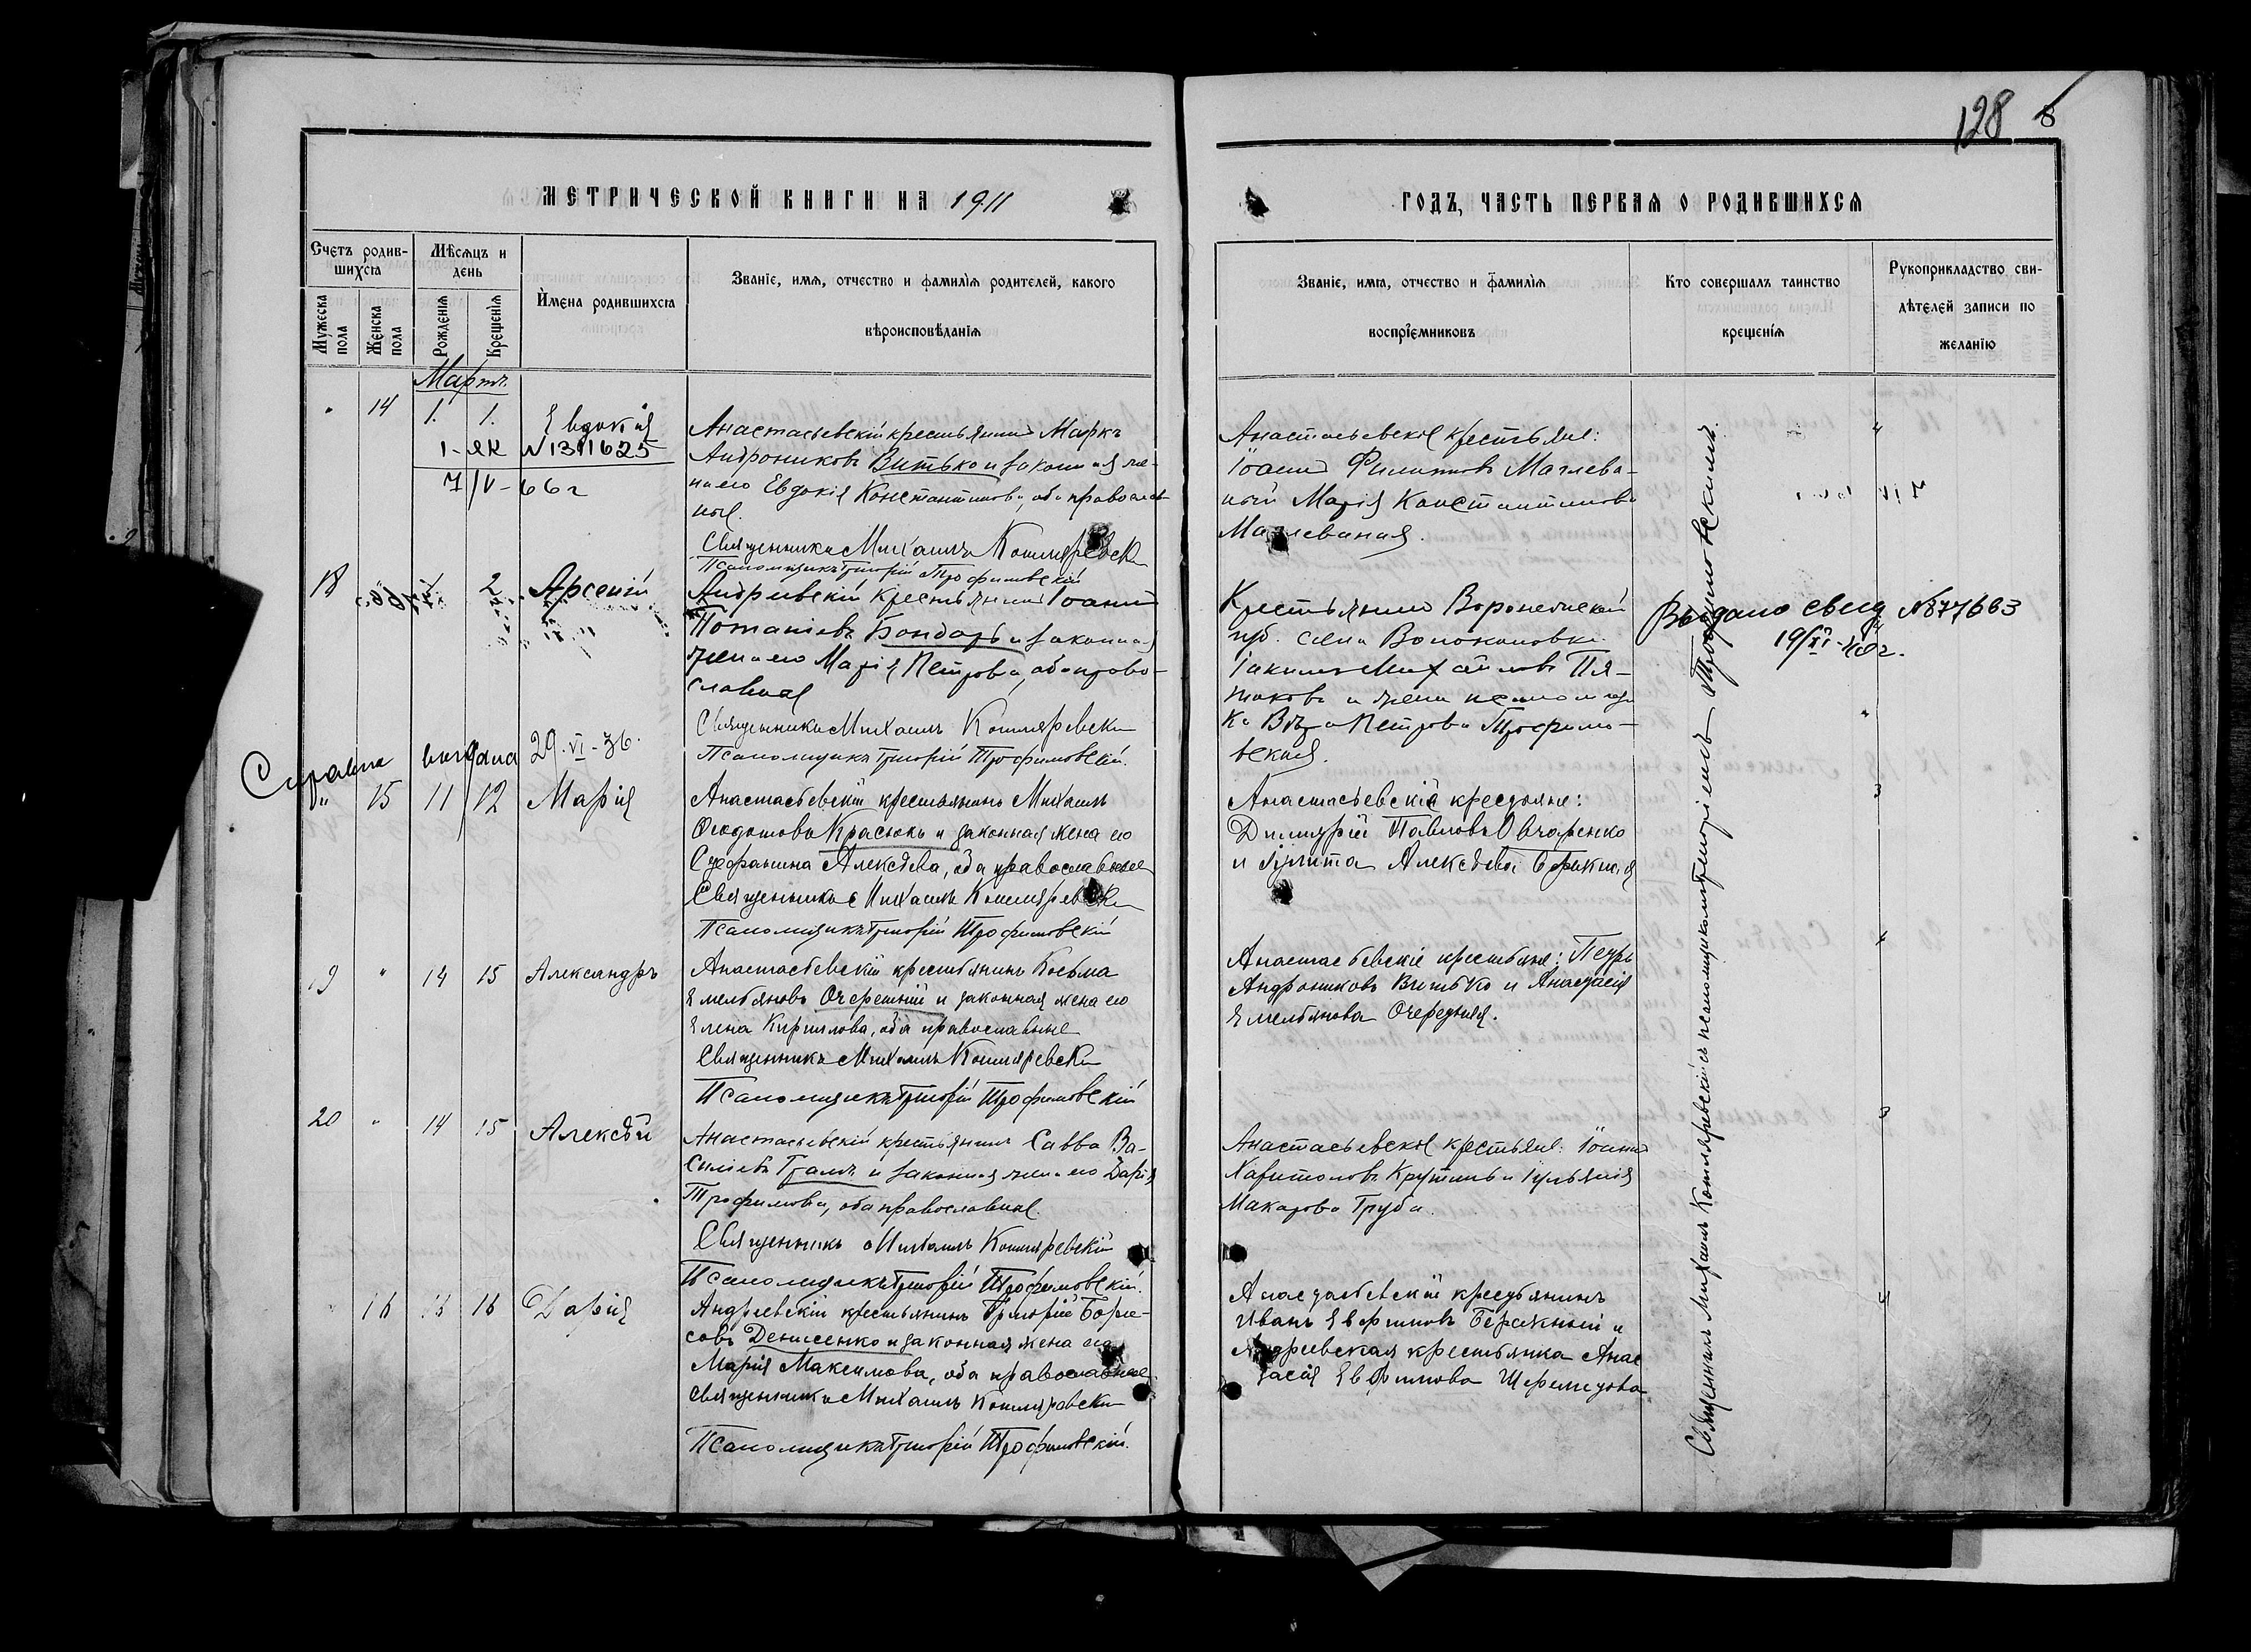 128 8
МЕТРИЧЕСКОЙ КНИГИ НА 1911
ГОДЪ, ЧАСТЬ ПЕРВАЯ О РОДИВШИХСЯ
Счетъ родив-
шихся
Мужеска пола
Женска пола
Мѣсяцъ и
день
Рожденія
Крещенія
Имена родившихся
Званіе, имя, отчество и фамилія родителей, какого
вѣроисповѣданія
Званіе, имя, отчество и фамилія
воспріемниковъ
Кто совершалъ таинство
крещенія
Рукоприкладство сви-
дѣтелей записи по
желанію
Мартъ
" 14 1. 1. Евдокія
1-ЯК №1311625
7/IV-66г
Анастасьевскій крестьянинъ Маркъ
Андрониковъ Витько и законная же-
на его Евдокія Константинова, оба православ-
ные.
Священникъ Михаилъ Котляревскій
Псаломщикъ Григорій Трофимовскій
Анастасьевскіе крестьяне:
Іоаннъ Филипповъ Маглева-
ный Марія Константинова
Маглеваная.
18 2 Арсеній
Андреевскій крестьянинъ Іоаннъ
Потапіевъ Бондарь и законная
жена его Марія Петрова, оба право-
славные
Священникъ Михаилъ Котляревскій
Псаломщикъ Григорій Трофимовскій.
Крестьянинъ Воронежской
губ. села Волоконовки
Іакимъ Михайловъ Пя-
таковъ и жена псаломщи
ка Вѣра Петрова Трофимо-
вская.
Выдано свид №877663
19/XI-40г.
Справка выдана 29.VI-36.
" 15 11 12 Марія
Анастасьевскій крестьянинъ Михаилъ
Ѳеодотовъ Красюкъ и законная жена его
Стефанина Алексѣева, оба православные
Священникъ Михаилъ Котляревскій
Псаломщикъ Григорій Трофимовскій
Анастасьевскіе крестьяне:
Димитрій Павловъ Овчаренко
и Алексѣева
19 " 14 15 Александръ
Анастасьевскій крестьянинъ Косьма
Емельяновъ Очередній и законная жена его
Елена Кириллова, оба православные
Священникъ Михаилъ Котляревскій
Псаломщикъ Григорій Трофимовскій
Анастасьевскіе крестьяне: Петръ
Андрониковъ Витько и Анастасія
Емельянова Очередняя.
20 " 14 15 Алексѣй
Анастасьевскій крестьянинъ Савва Ва-
сильевъ и законная жена его Дарія
Трофимова, оба православные.
Священникъ Михаилъ Котляревскій
Псаломщикъ Григорій Трофимовскій.
Анастасьевскіе крестьяне: Іоаннъ
Харитоновъ Крутинь и Іульянія
Макарова Труба.
" 16 16 Дарія
Андреевскій крестьянинъ Григорій Бори-
совъ Денисенко и законная жена его
Марія Максимова, оба православные.
Священникъ Михаилъ Котляревскій
Псаломщикъ Григорій Трофимовскій.
Анастасьевскій крестьянинъ
Иванъ Евфимовъ Бережный и
Андреевская крестьянка Анас
тасія Евфимова Шереметова
Священникъ Михаилъ Котляревскій съ псаломщикомъ Григоріемъ Трофимовскимъ.